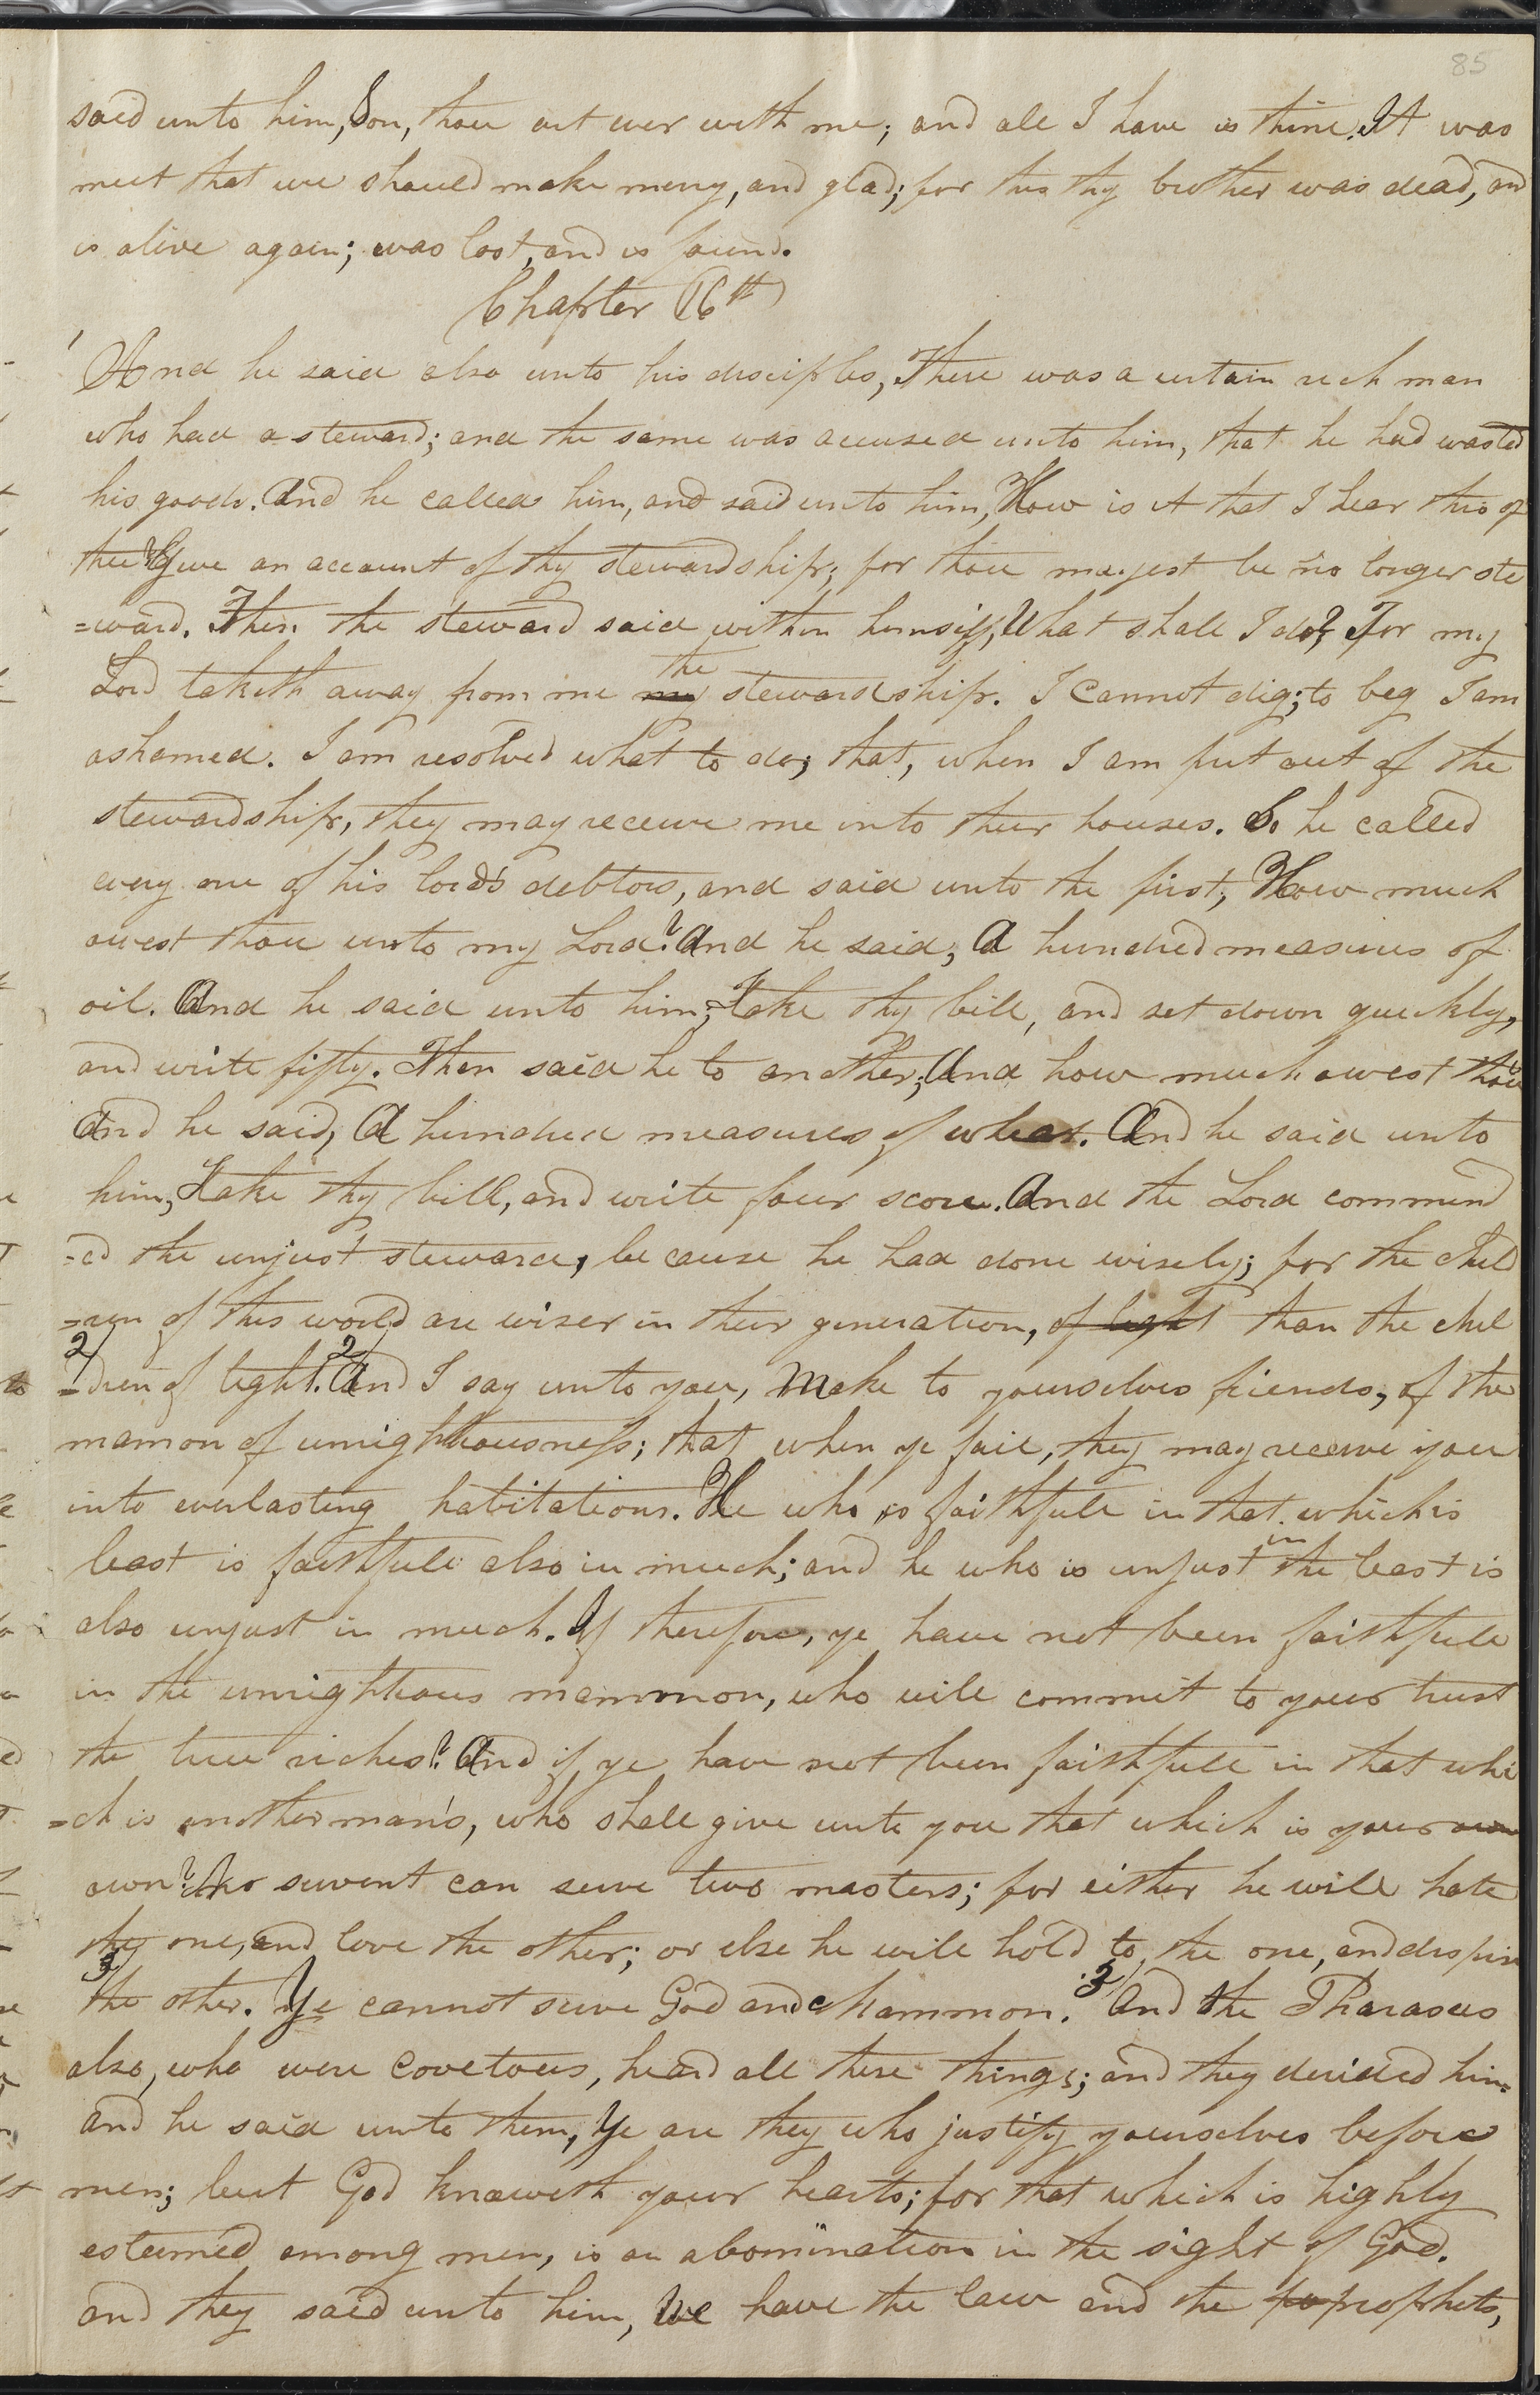 85
said unto him, Son, thou art ever with me; and all I have is thine. It was
meet that we should make merry, and glad; for this thy brother was dead, and
is alive again; was lost, and is found.
Chapter 16th
1 And he said also unto his disciples, There was a certain rich man
who had a steward; and the same was accused unto him, that he had wasted
his goods. And he called him, and said unto him, How is it that I hear this of
thee? Give an account of thy stewardship; for thou mayest be no longer ste
=ward. Then the steward said within himself, What shall I do? For my
Lord taketh away from me my the stewardship. I cannot dig; to beg I am
ashamed. I am resolved what to do; that, when I am put out of the
stewardship, they may receive me into their houses. So he called
every one of his lord's debtors, and said unto the first, How much
owest thou unto my Lord? And he said, A hundred measures of
oil. And he said unto him, Take thy bill, and set down quickly,
and write fifty. Then said he to another, And how much owest thou?
And he said, A hundred measures of wheat. And he said unto
him, Take thy bill, and write four score. And the Lord commend
=ed the unjust steward, because he had done wisely; for the chil
=ren of this world are wiser in their generation, of light than the chil
2/ =dren of light. 2/ And I say unto you, Make to yourselves friends, of the
mamon of unrighteousness; that when ye fail, they may receive you
into everlasting habitations. He who is faithfull in that which is
least is faithfull also in much; and he who is unjust in the least is
also unjust in much. If therefore, ye have not been faithfull
in the unrighteous mammon, who will commit to your trust
the true riches? And if ye have not been faithfull in that whi
=ch is another man's, who shall give unto you that which is your own
own? No servent can serve two masters; for either he will hate
the one, and love the other; or else he will hold to the one, and dispise
3/ the other. Ye cannot serve God and Mammon. 3/ And the Pharasees
also, who were covetous, heard all these things; and they derided him.
and he said unto them, Ye are they who justify yourselves before
men; but God knoweth your hearts; for that which is highly
esteemed among men, is an abomination in the sight of God.
and they said unto him, We have the law and the pr prophets,